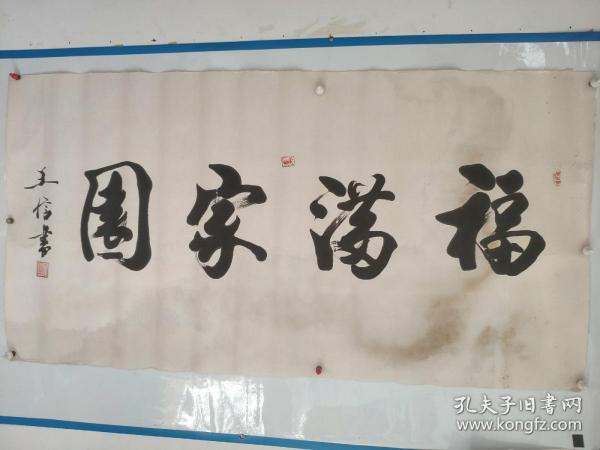 福满家園
孔夫子旧書网
www.kongfz.com